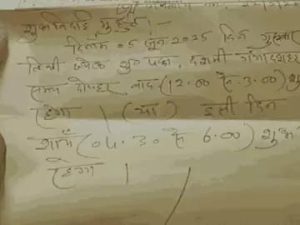 शुभ विदाई मुहूर्त
दिनांक 05 जून 2025 दिन गुरुवार
तिथी ज्येष्ठ शु० पक्ष, दशमी गंगादशहरा
समय दोपहर बाद (12.00 से 3.00) शुभ
रहेगा । (या) इसी दिन
शाम (04.30 से 6.00) शुभ
रहेगा ।